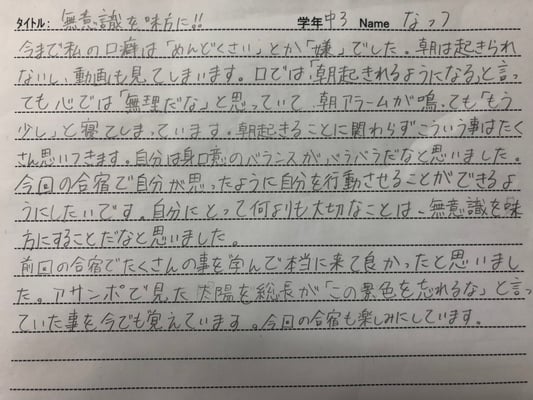 タイトル: 無意識を味方に!! 学年 中3 Name なっつ
今まで私の口癖は「めんどくさい」とか「嫌」でした。朝は起きられ
ないし、動画も見てしまいます。口では「朝起きれるようになる」と言っ
ても心では「無理だな」と思っていて、朝アラームが鳴っても「もう
少し」と寝てしまっています。朝起きることに関わらずこういう事はたく
さん思いつきます。自分は身口意のバランスがバラバラだなと思いました。
今回の合宿で自分が思ったように自分を行動させることができるよ
うにしたいです。自分にとって何よりも大切なことは、無意識を味
方にすることだなと思いました。
前回の合宿でたくさんの事を学んで本当に来て良かったと思いまし
た。アサンポで見た太陽を総長が「この景色を忘れるな」と言っ
ていた事を今でも覚えています。今回の合宿も楽しみにしています。